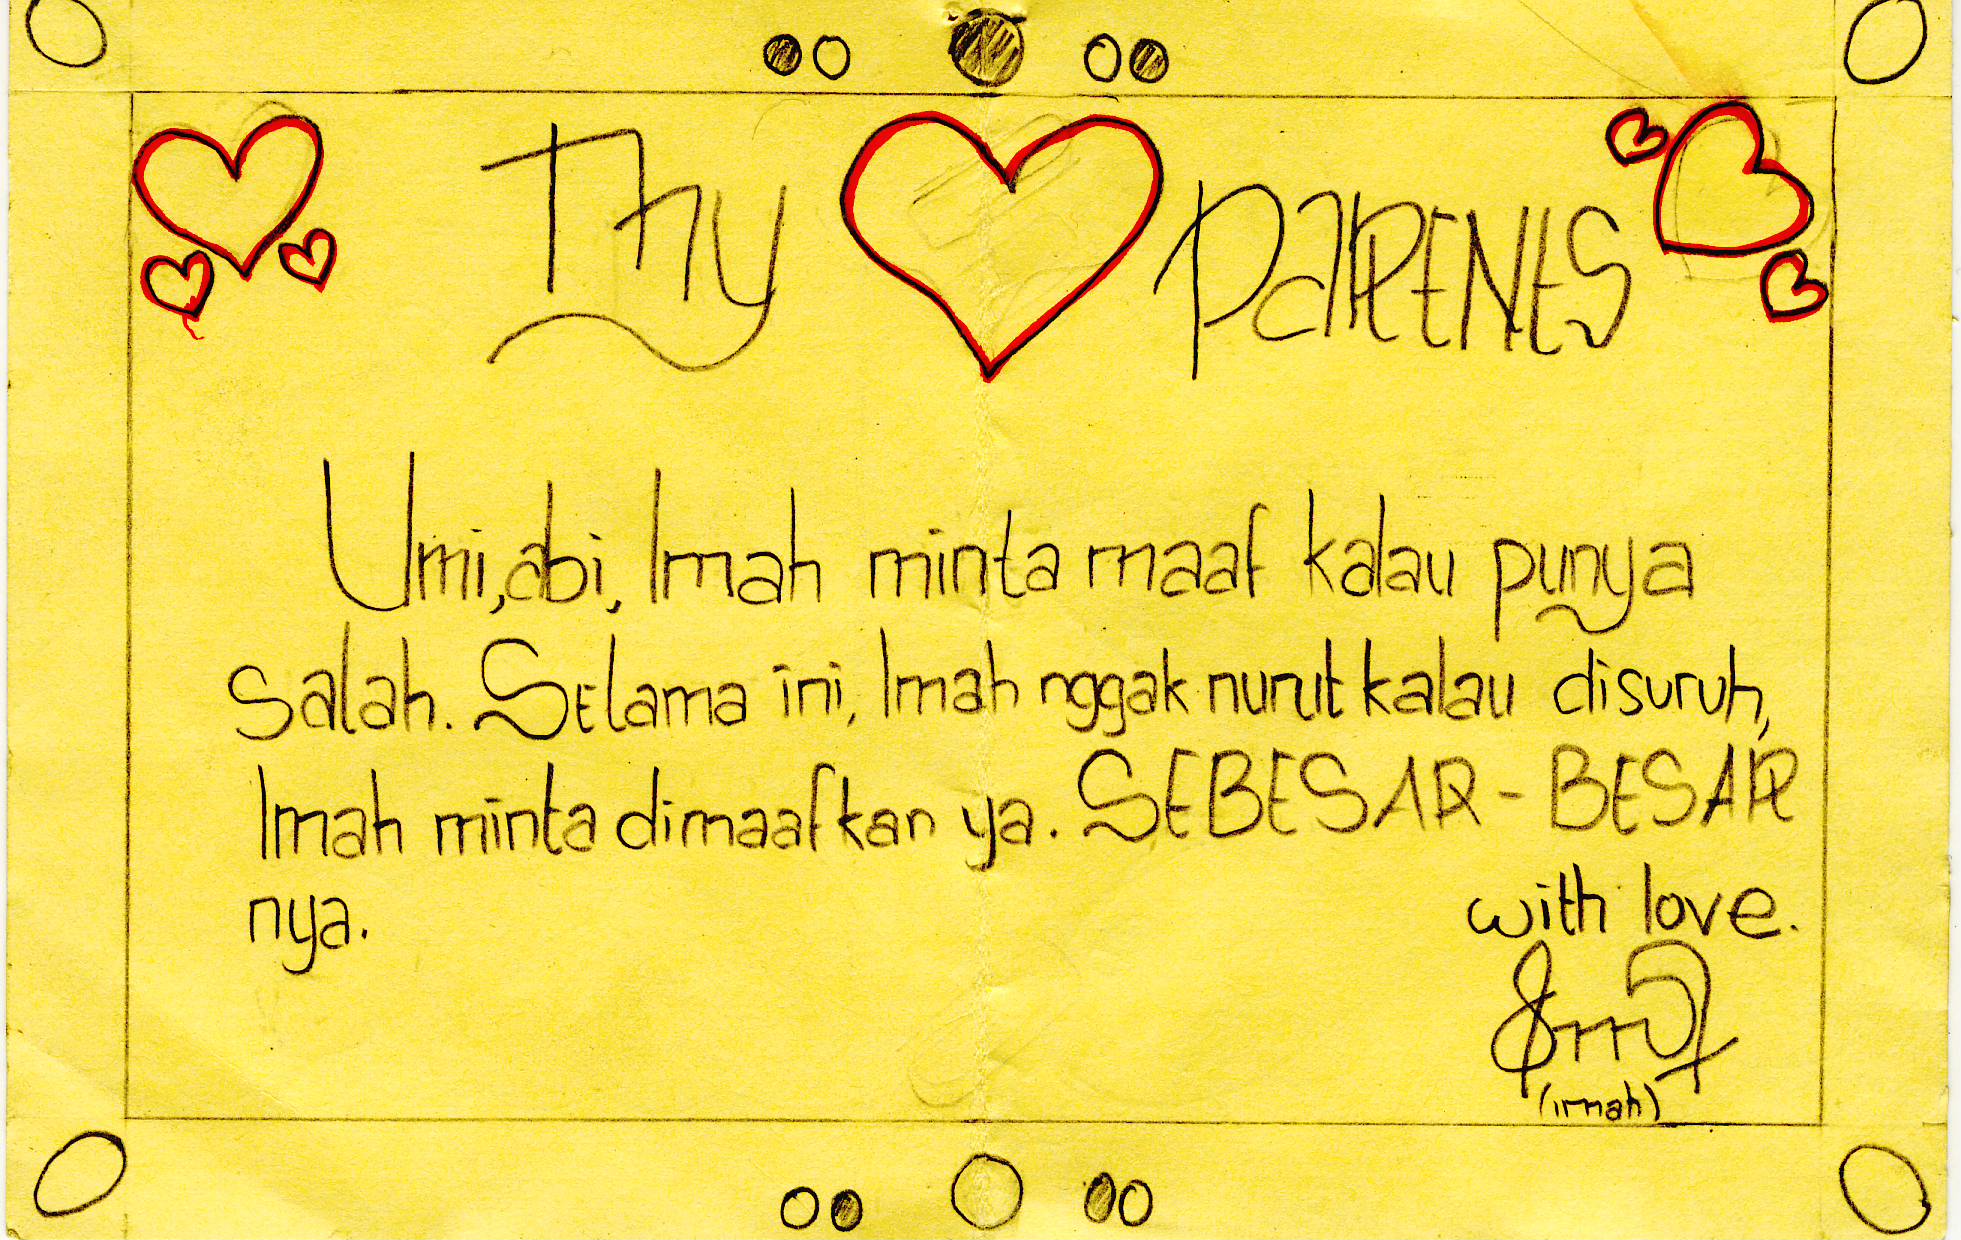 Thy PARENtS
Umi, abi, Imah minta maaf kalau punya
salah. Selama ini, Imah nggak nurut kalau disuruh,
Imah minta dimaafkan ya. SEBESAR-BESAR
nya.
with love.
(imah)